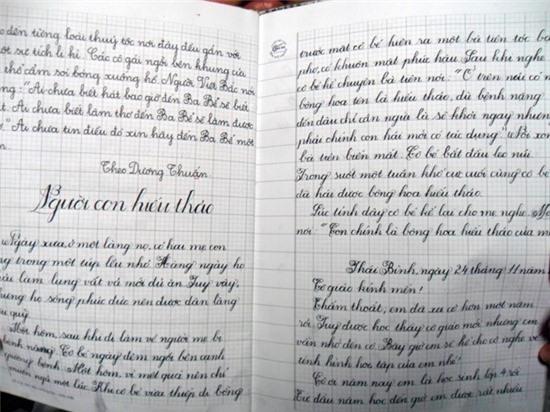 o đến từng loài thuỷ tộc nơi đây đều gắn với
một sự tích li kì. Các cô gái ngồi bên khung cửa
thể cầm soi bóng xuống hồ. Người Việt Bắc nói
rằng: "Ai chưa biết hát bao giờ đến Ba Bể sẽ biết
át. Ai chưa biết làm thơ đến Ba Bể sẽ làm được
ơ." Ai chưa tin điều đó xin hãy đến Ba Bể một
n.
Theo Dương Thuấn
Người con hiếu thảo
Ngày xưa, ở một làng nọ, có hai mẹ con
ng trong một túp lều nhỏ. Hàng ngày họ
ải làm lụng vất vả mới đủ ăn. Tuy vậy,
ưng họ sống phúc đức nên được dân làng
u quý.
Một hôm, sau khi đi làm về người mẹ bị
bệnh nặng. Cô bé ngày đêm ngồi bên cạnh
giường bệnh. Một hôm, vì mệt quá nên chỉ
quên ngủ một lúc. Khi cô bé vừa thiếp đi bỗng
trước mắt cô bé hiện ra một bà tiên tóc bạ
phơ, có khuôn mặt phúc hậu. Sau khi nghe
cô bé kể chuyện bà tiên nói: "Ở trên núi có m
bông hoa tên là hiếu thảo, dù bệnh nặng
đến đâu chỉ cần ngửi là sẽ khỏi ngay nhưng
phải chính con hái mới có tác dụng". Nói xon
bà tiên biến mất. Cô bé bắt đầu leo núi.
Trong suốt một tuần khổ cực cuối cùng cô bé
đã hái được bông hoa hiếu thảo.
Lúc tỉnh dậy cô bé kể lại cho mẹ nghe. Mẹ
nói: "Con chính là bông hoa hiếu thảo của m
Thái Bình, ngày 24 tháng 11 năm
Cô giáo kính mến!
Thấm thoắt, em đã xa cô hơn một năm
rồi. Tuy được học thầy cô giáo mới nhưng em
vẫn nhớ đến cô. Bây giờ em sẽ kể cho cô nghe về
tình hình học tập của em nhé!
Cô ơi năm nay em là học sinh lớp 4 rồi
Từ đầu năm học đến giờ em được rất nhiều